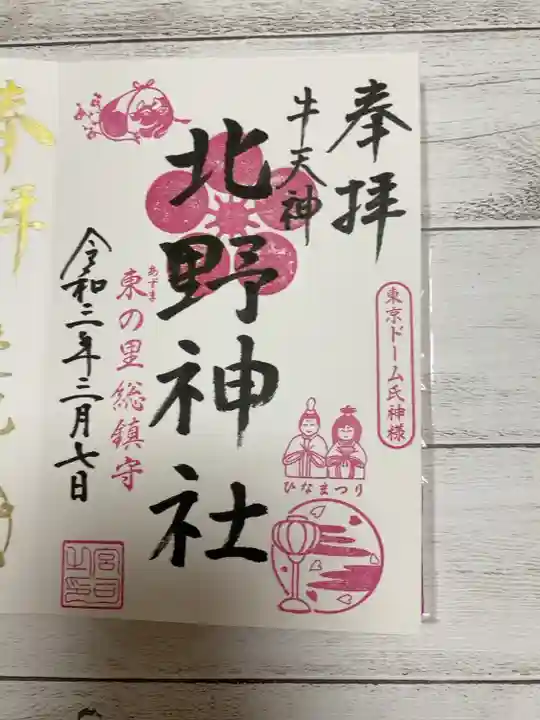 奉拝
牛天神
北野神社
東京ドーム氏神様
ひなまつり
東の里総鎮守
あずま
令和三年三月七日
奉拝